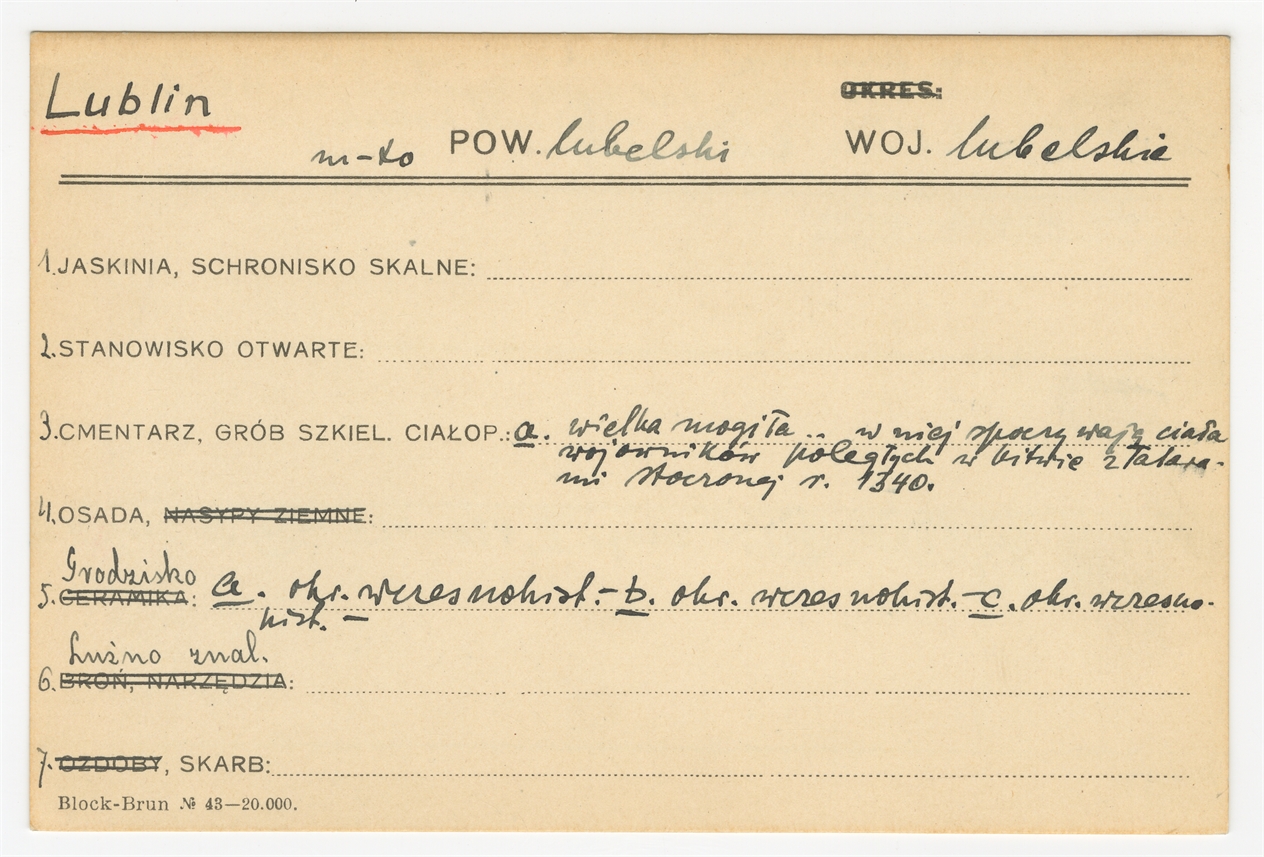 Lublin
OKRES:
m-to POW. lubelski WOJ. lubelskie
1. JASKINIA, SCHRONISKO SKALNE:
2. STANOWISKO OTWARTE:
3. CMENTARZ, GRÓB SZKIEL. CIAŁOP.: a. wielka mogiła .. w niej spoczywają ciała
wojowników poległych w bitwie z Tatara-
mi stoczonej r. 1340.
4. OSADA, NASYPY ZIEMNE:
Grodzisko
5. CERAMIKA: a. okr. wczesnohist. - b. okr. wczesnohist. - c. okr. wczesno-
hist. -
Luźno znal.
6. BROŃ, NARZĘDZIA:
7. OZDOBY, SKARB:
Block-Brun № 43—20.000.